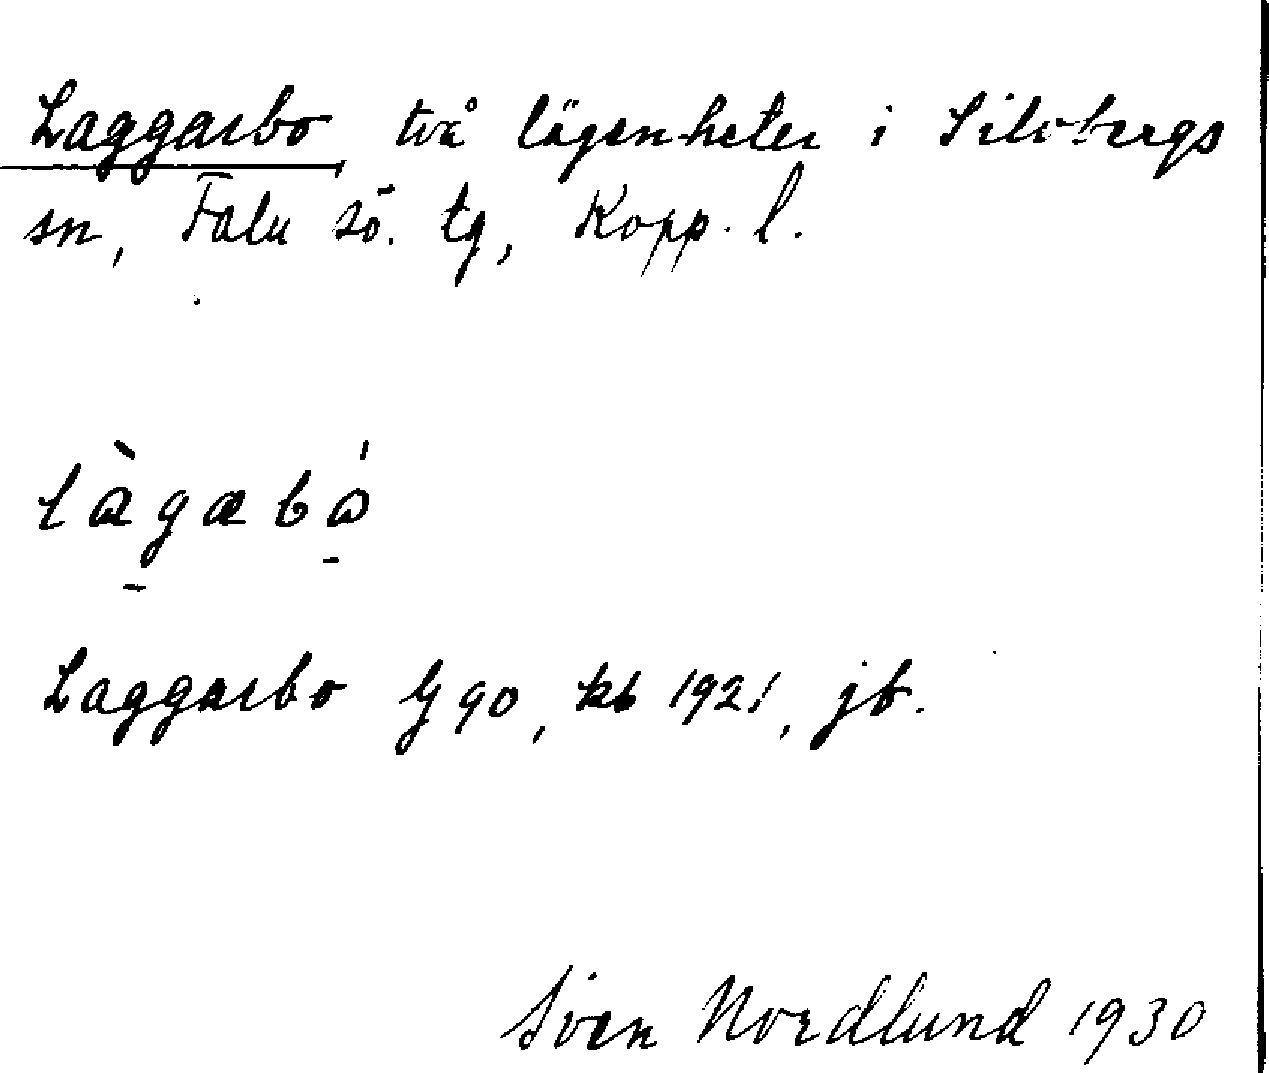 Laggarbo två lägenheter i Silvbergs
sn, Falu sö. tg, Kopp. l.
làgabó
Laggarbo G 90, kb 1921, jb.
Sven Nordlund 1930